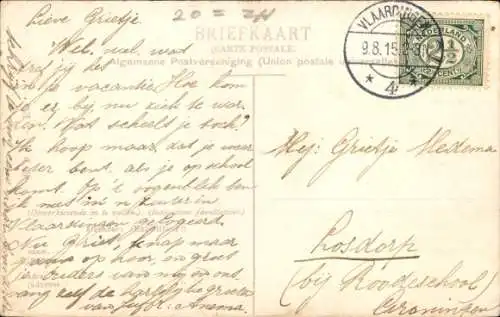 20 =
BRIEFKAART
(CARTE POSTALE)
Algemeene Postvereeniging (Union postale universelle)
VLAARDINGEN
9.8.15
4
NEDERLAND
2½
CENT
Lieve Grietje
Wel, wel, wat
trof jij het
in je vacantie. Hoe kom
je er bij nu ziek te wor
ren. Wat scheelt je toch?
Ik hoop maar dat je weer
beter bent, als je op school
komt. Op 't oogenblik ben
ik met m'n zuster in
Vlaardingen gelogeerd.
Nu Griet, knap maar
gauw op hoor, en groet
je ouders van mij en ont
vang zelf de hartelijke groeten
van juffr.
Mej: Grietje Medema
Losdorp
(bij Roodeschool)
Groningen